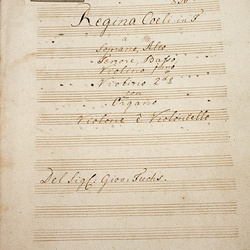 Regina Coeli in F
a
Soprano, Alto
Tenore, Basso
Violino Imo
Violino 2do
con
Organo
Violone è Violoncello
Del Sig. Giov. Fuchs.